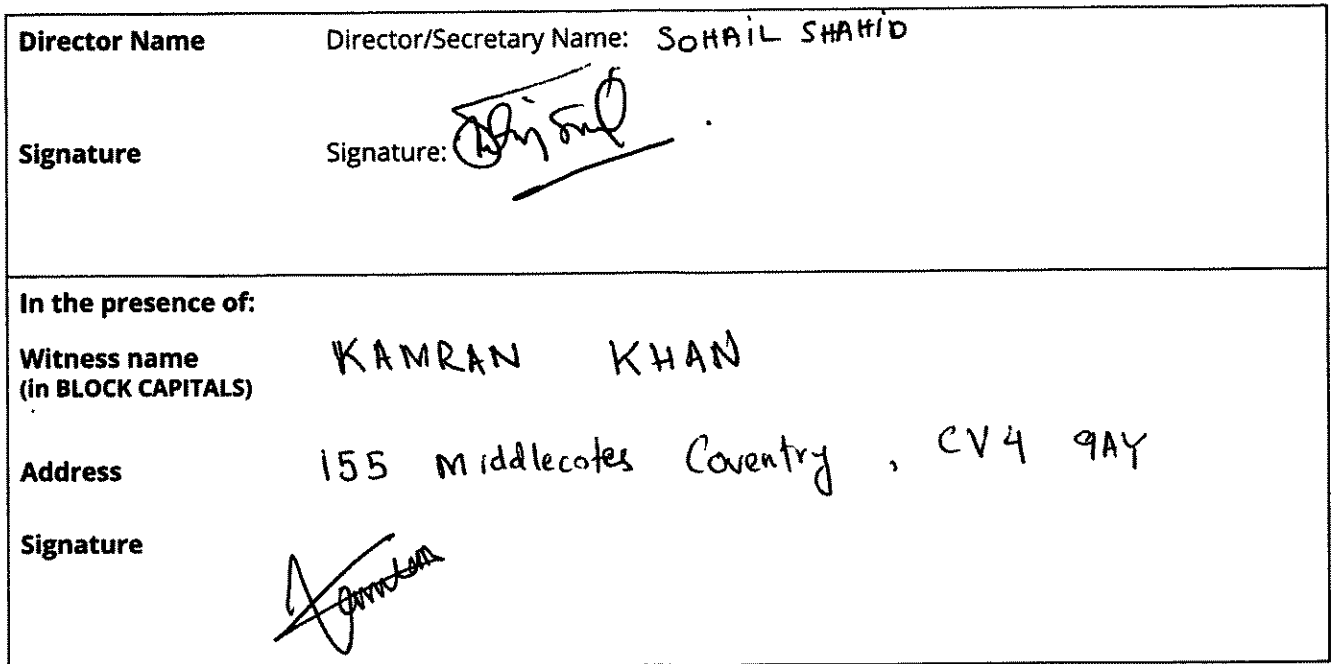 Director Name Director/Secretary Name: SOHAIL SHAHID
Signature Signature:
In the presence of:
Witness name KAMRAN KHAN
(in BLOCK CAPITALS)
Address 155 Middlecotes Coventry, CV4 9AY
Signature